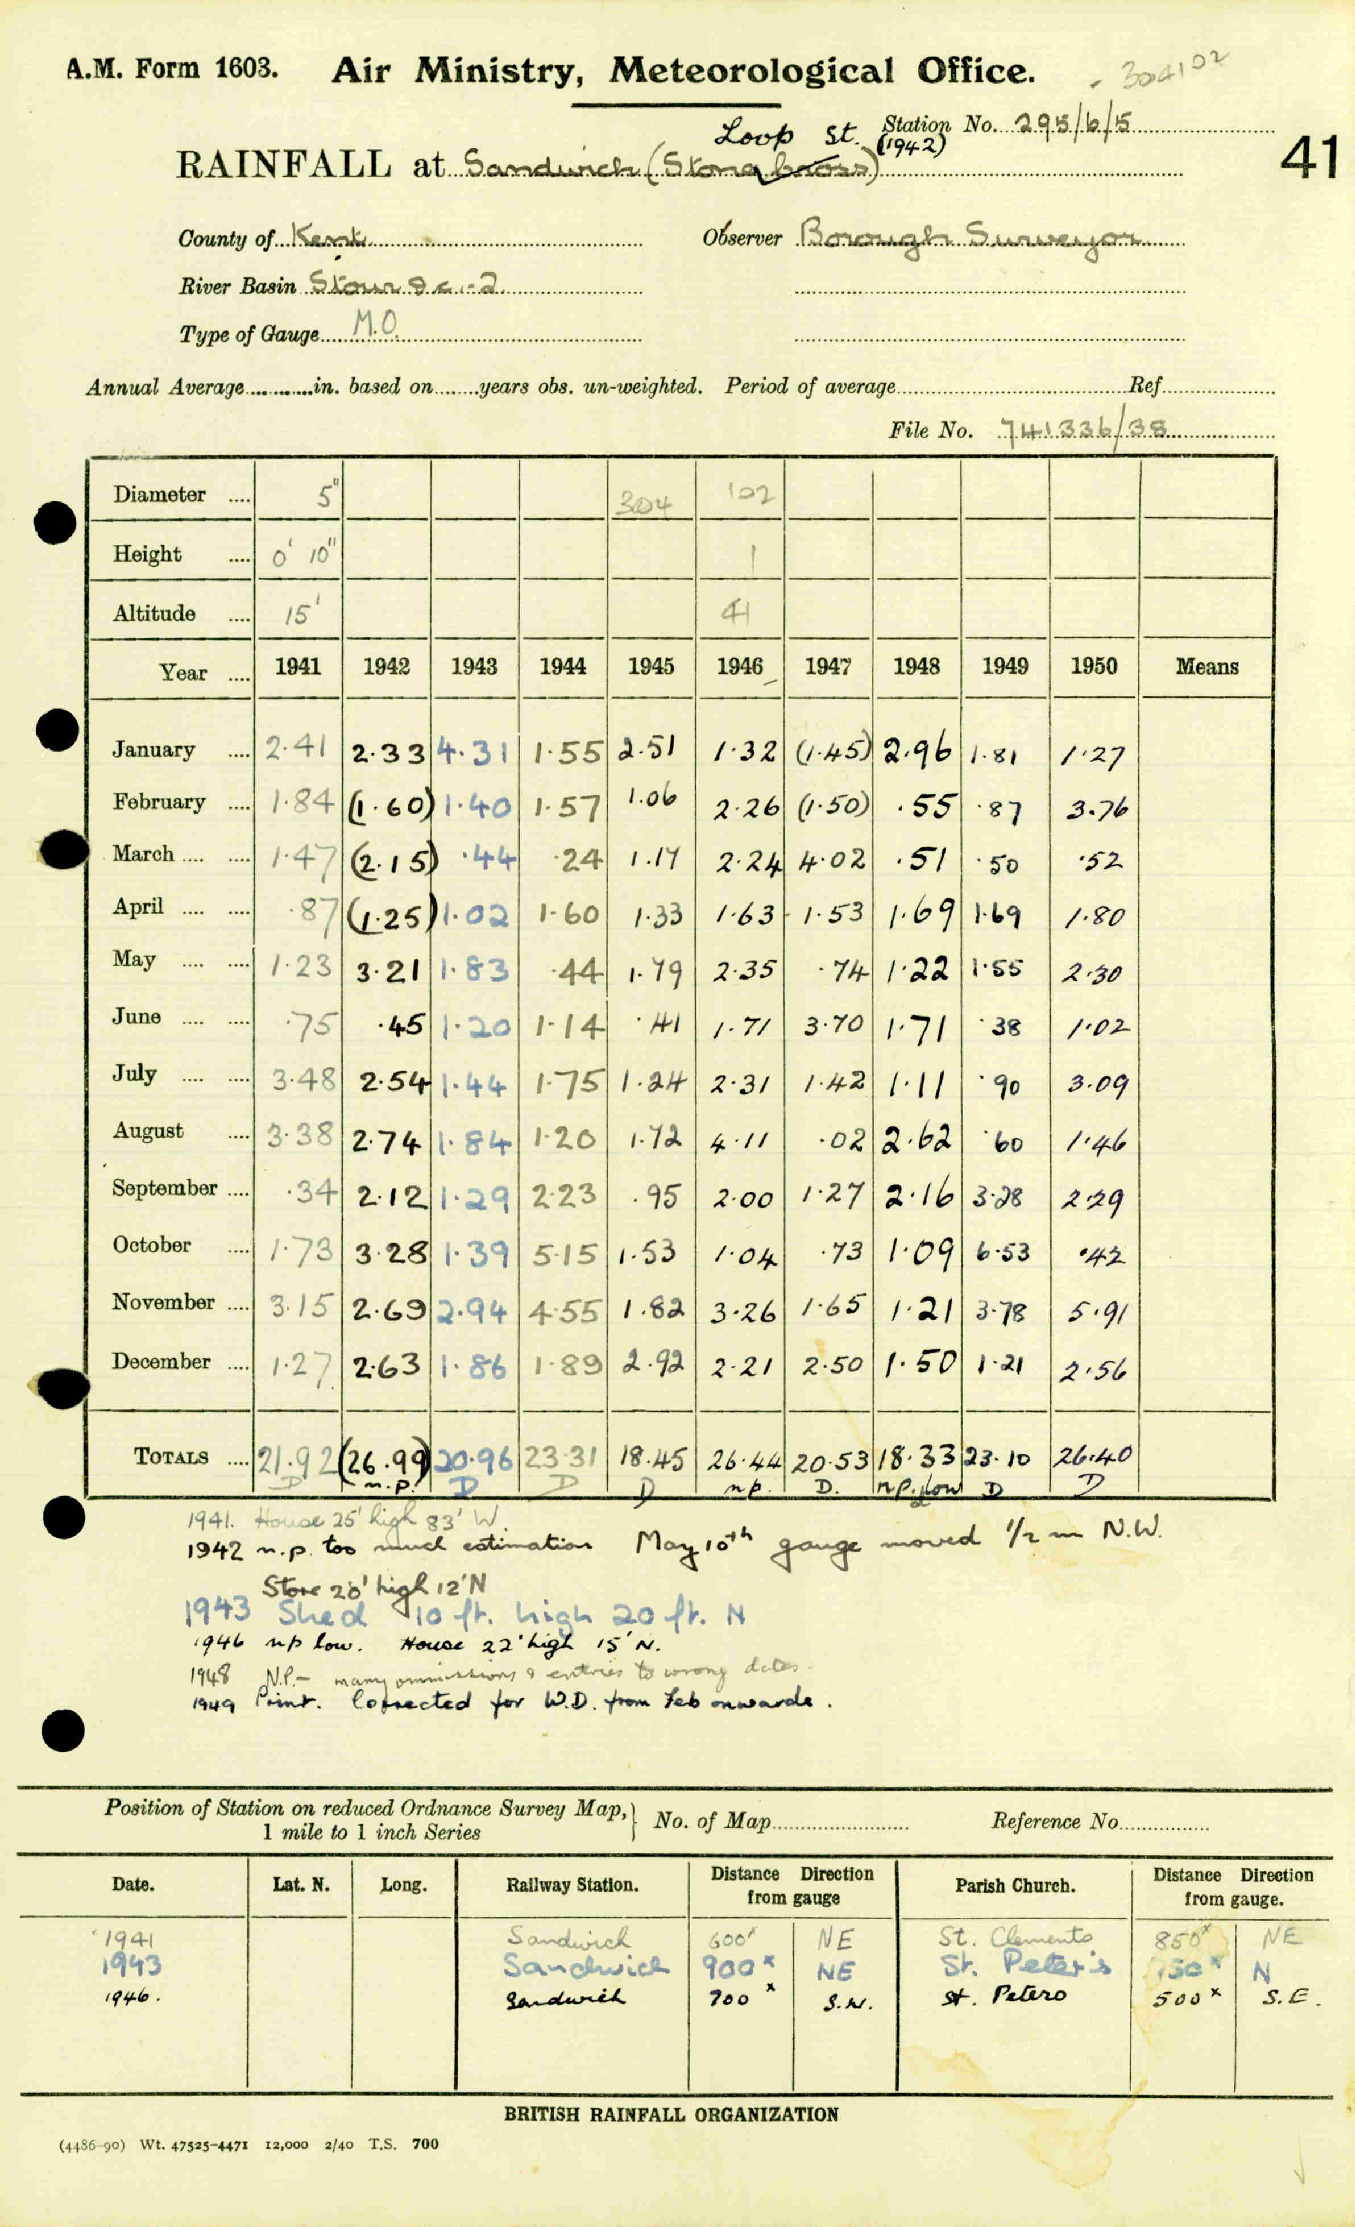 A.M. Form 1603. Air Ministry, Meteorological Office. 304102
Loop St. (1942) Station No. 295/6/15
RAINFALL at Sandwich (Stone Cross) 41
County of Kent Observer Borough Surveyor
River Basin Stour
Type of Gauge M.O.
Annual Average in. based on years obs. un-weighted. Period of average Ref
File No. 741336/38
Diameter 5" 304 102
Height 0' 10" 1
Altitude 15' 41
Year 1941 1942 1943 1944 1945 1946 1947 1948 1949 1950 Means
January 2.41 2.33 4.31 1.55 2.51 1.32 (1.45) 2.96 1.81 1.27
February 1.84 (1.60) 1.40 1.57 1.06 2.26 (1.50) .55 .87 3.76
March 1.47 (2.15) .44 .24 1.17 2.24 4.02 .51 .50 .52
April .87 (1.25) 1.02 1.60 1.33 1.63 1.53 1.69 1.69 1.80
May 1.23 3.21 1.83 .44 1.79 2.35 .74 1.22 1.55 2.30
June .75 .45 1.20 1.14 .41 1.71 3.70 1.71 .38 1.02
July 3.48 2.54 1.44 1.75 1.24 2.31 1.42 1.11 .90 3.09
August 3.38 2.74 1.84 1.20 1.72 4.11 .02 2.62 .60 1.46
September .34 2.12 1.29 2.23 .95 2.00 1.27 2.16 3.28 2.29
October 1.73 3.28 1.39 5.15 1.53 1.04 .73 1.09 6.53 .42
November 3.15 2.69 2.94 4.55 1.82 3.26 1.65 1.21 3.78 5.91
December 1.27 2.63 1.86 1.89 2.92 2.21 2.50 1.50 1.21 2.56
TOTALS 21.92 (26.99) 20.96 23.31 18.45 26.44 20.53 18.33 23.10 26.40
D n.p. D D D np. D. n.p. low D D
1941. House 25' high 83' W.
1942 n.p. too much estimation May 10th gauge moved 1/2 m N.W.
Store 20' high 12' N
1943 Shed 10 ft. high 20 ft. N
1946 np low. House 22' high 15' N.
1948 N.P. - many ommissions & entries to wrong dates.
1949 Print. Corrected for W.D. from Feb onwards.
Position of Station on reduced Ordnance Survey Map, 1 mile to 1 inch Series No. of Map Reference No
Date. Lat. N. Long. Railway Station. Distance Direction from gauge Parish Church. Distance Direction from gauge.
1941 Sandwich 600x NE St. Clements 850x NE
1943 Sandwich 900x NE St. Peter's 150x N
1946. Sandwich 700x S.W. St. Peters 500x S.E.
BRITISH RAINFALL ORGANIZATION
(4486-90) Wt. 47525-4471 12,000 2/40 T.S. 700